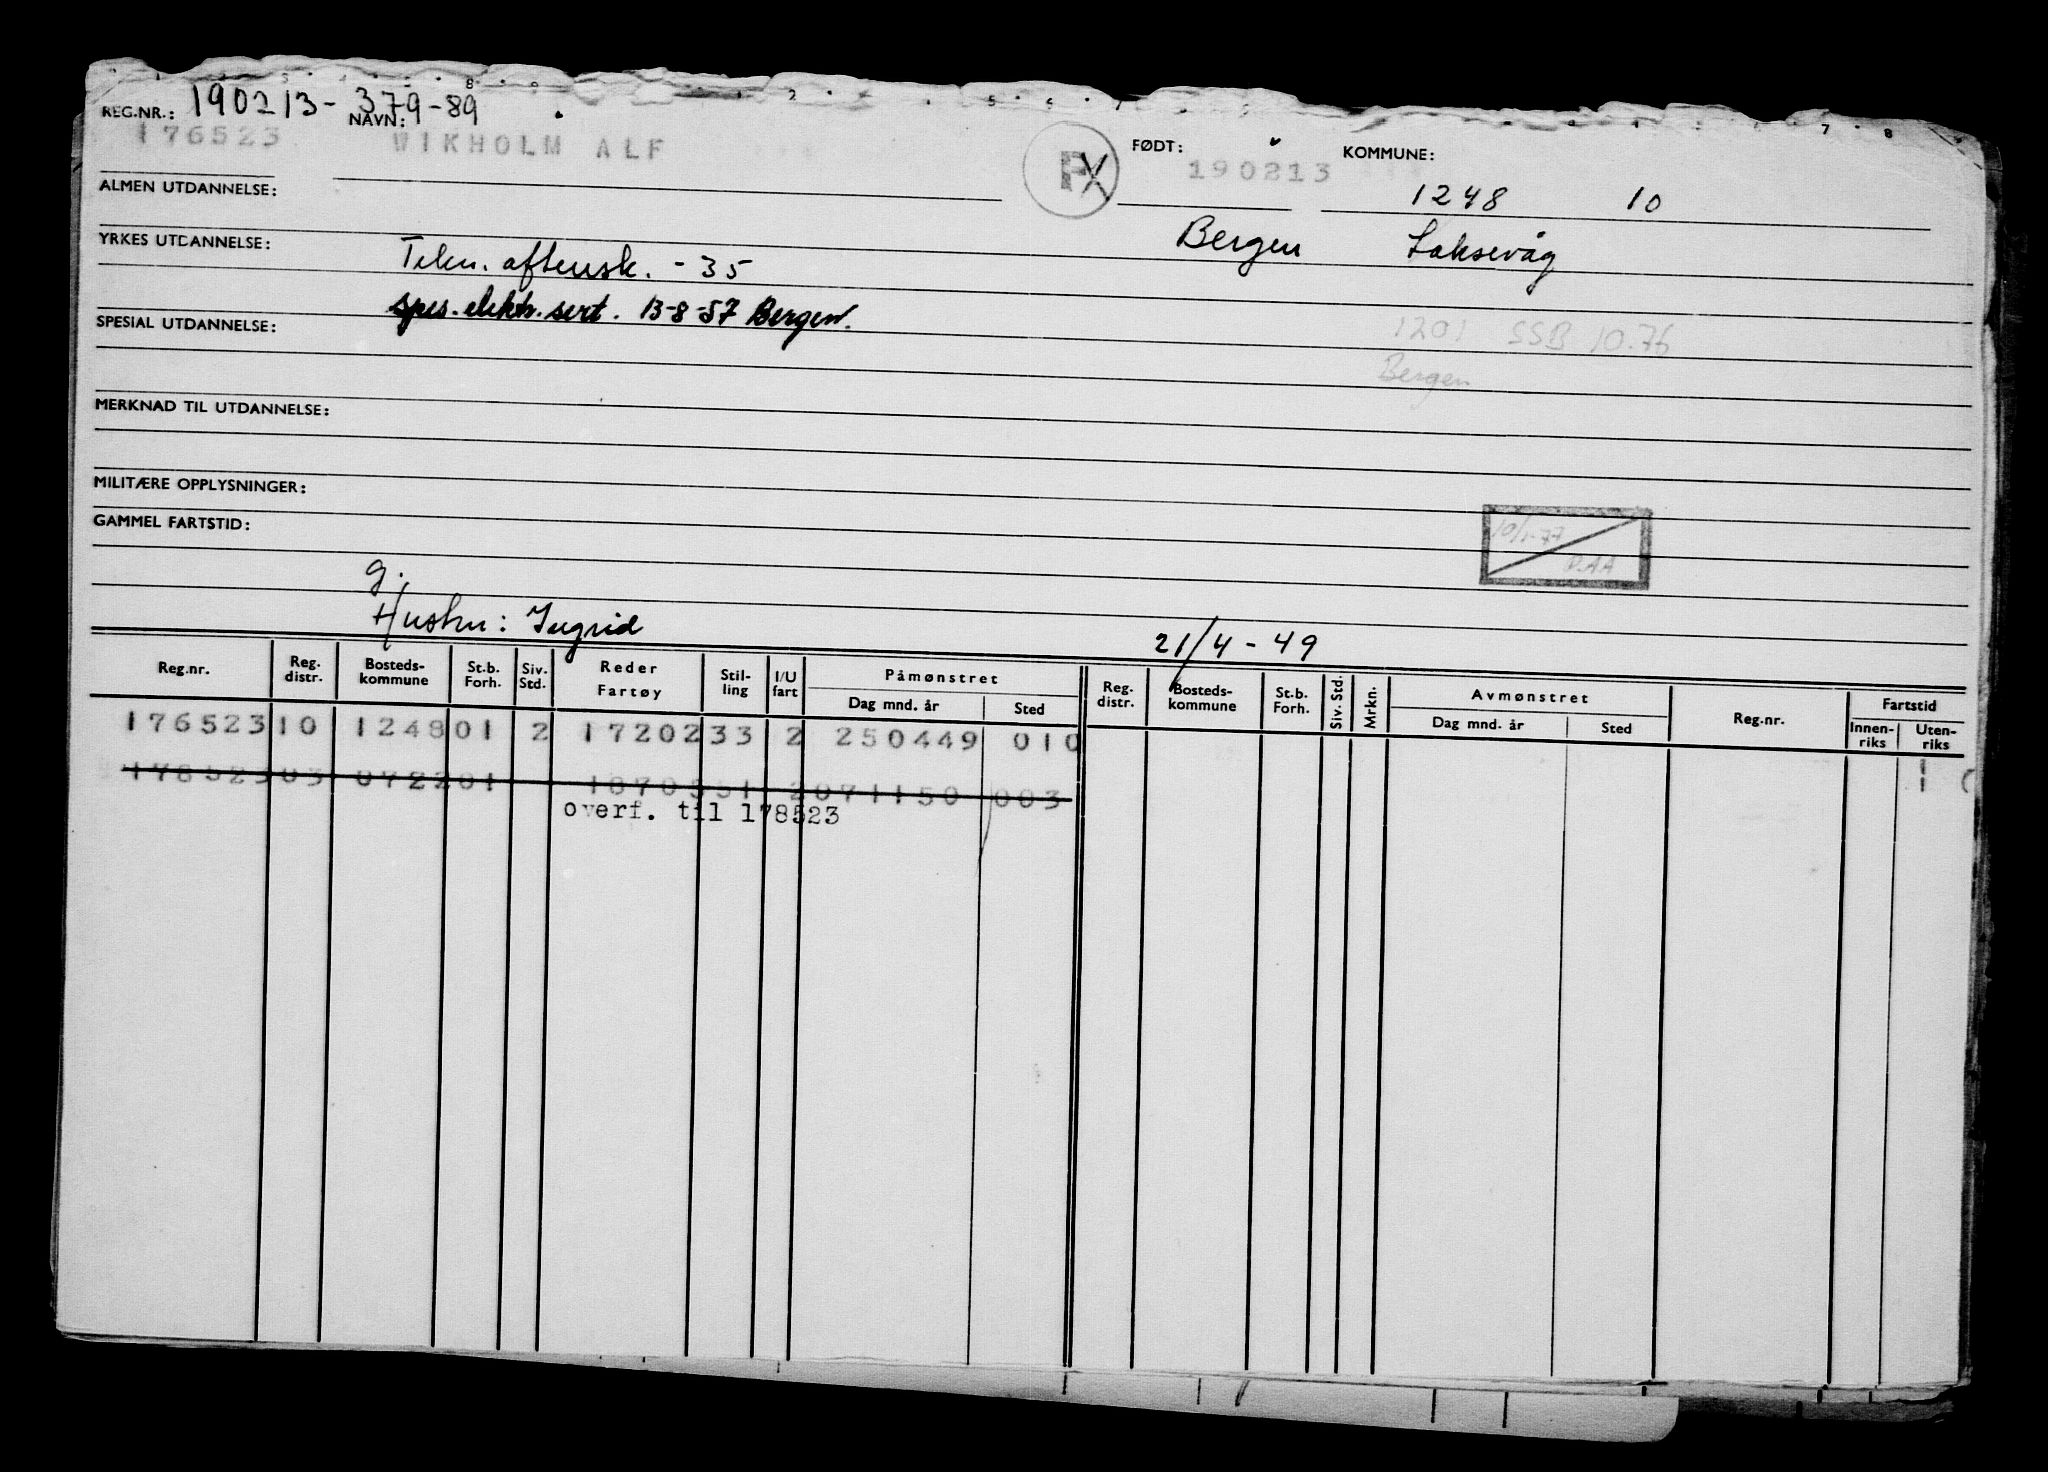 REG.NR.: 190213-379-89
176523 NAVN: WIKHOLM ALF FØDT: 190213 KOMMUNE:
1248 10
ALMEN UTDANNELSE:
Bergen Laksevåg
YRKES UTDANNELSE: Tekn. aftensk. - 35
spes. elektr. sert. 13-8-57 Bergen.
1201 SSB 10.76
Bergen
SPESIAL UTDANNELSE:
MERKNAD TIL UTDANNELSE:
MILITÆRE OPPLYSNINGER:
GAMMEL FARTSTID:
10/1-77
g.
Hustru: Ingrid 21/4-49
Reg.nr. Reg. distr. Bosteds-kommune St.b. Forh. Siv. Std. Reder Fartøy Stil-ling I/U fart Påmønstret Dag mnd. år Sted Reg. distr. Bosteds-kommune St.b. Forh. Siv. Std. Mrkn. Avmønstret Dag mnd. år Sted Reg.nr. Fartstid Innen-riks Uten-riks
176523 10 1248 01 2 17202 33 2 250449 010
178523 03 0722 01 2 071150 003
overf. til 178523